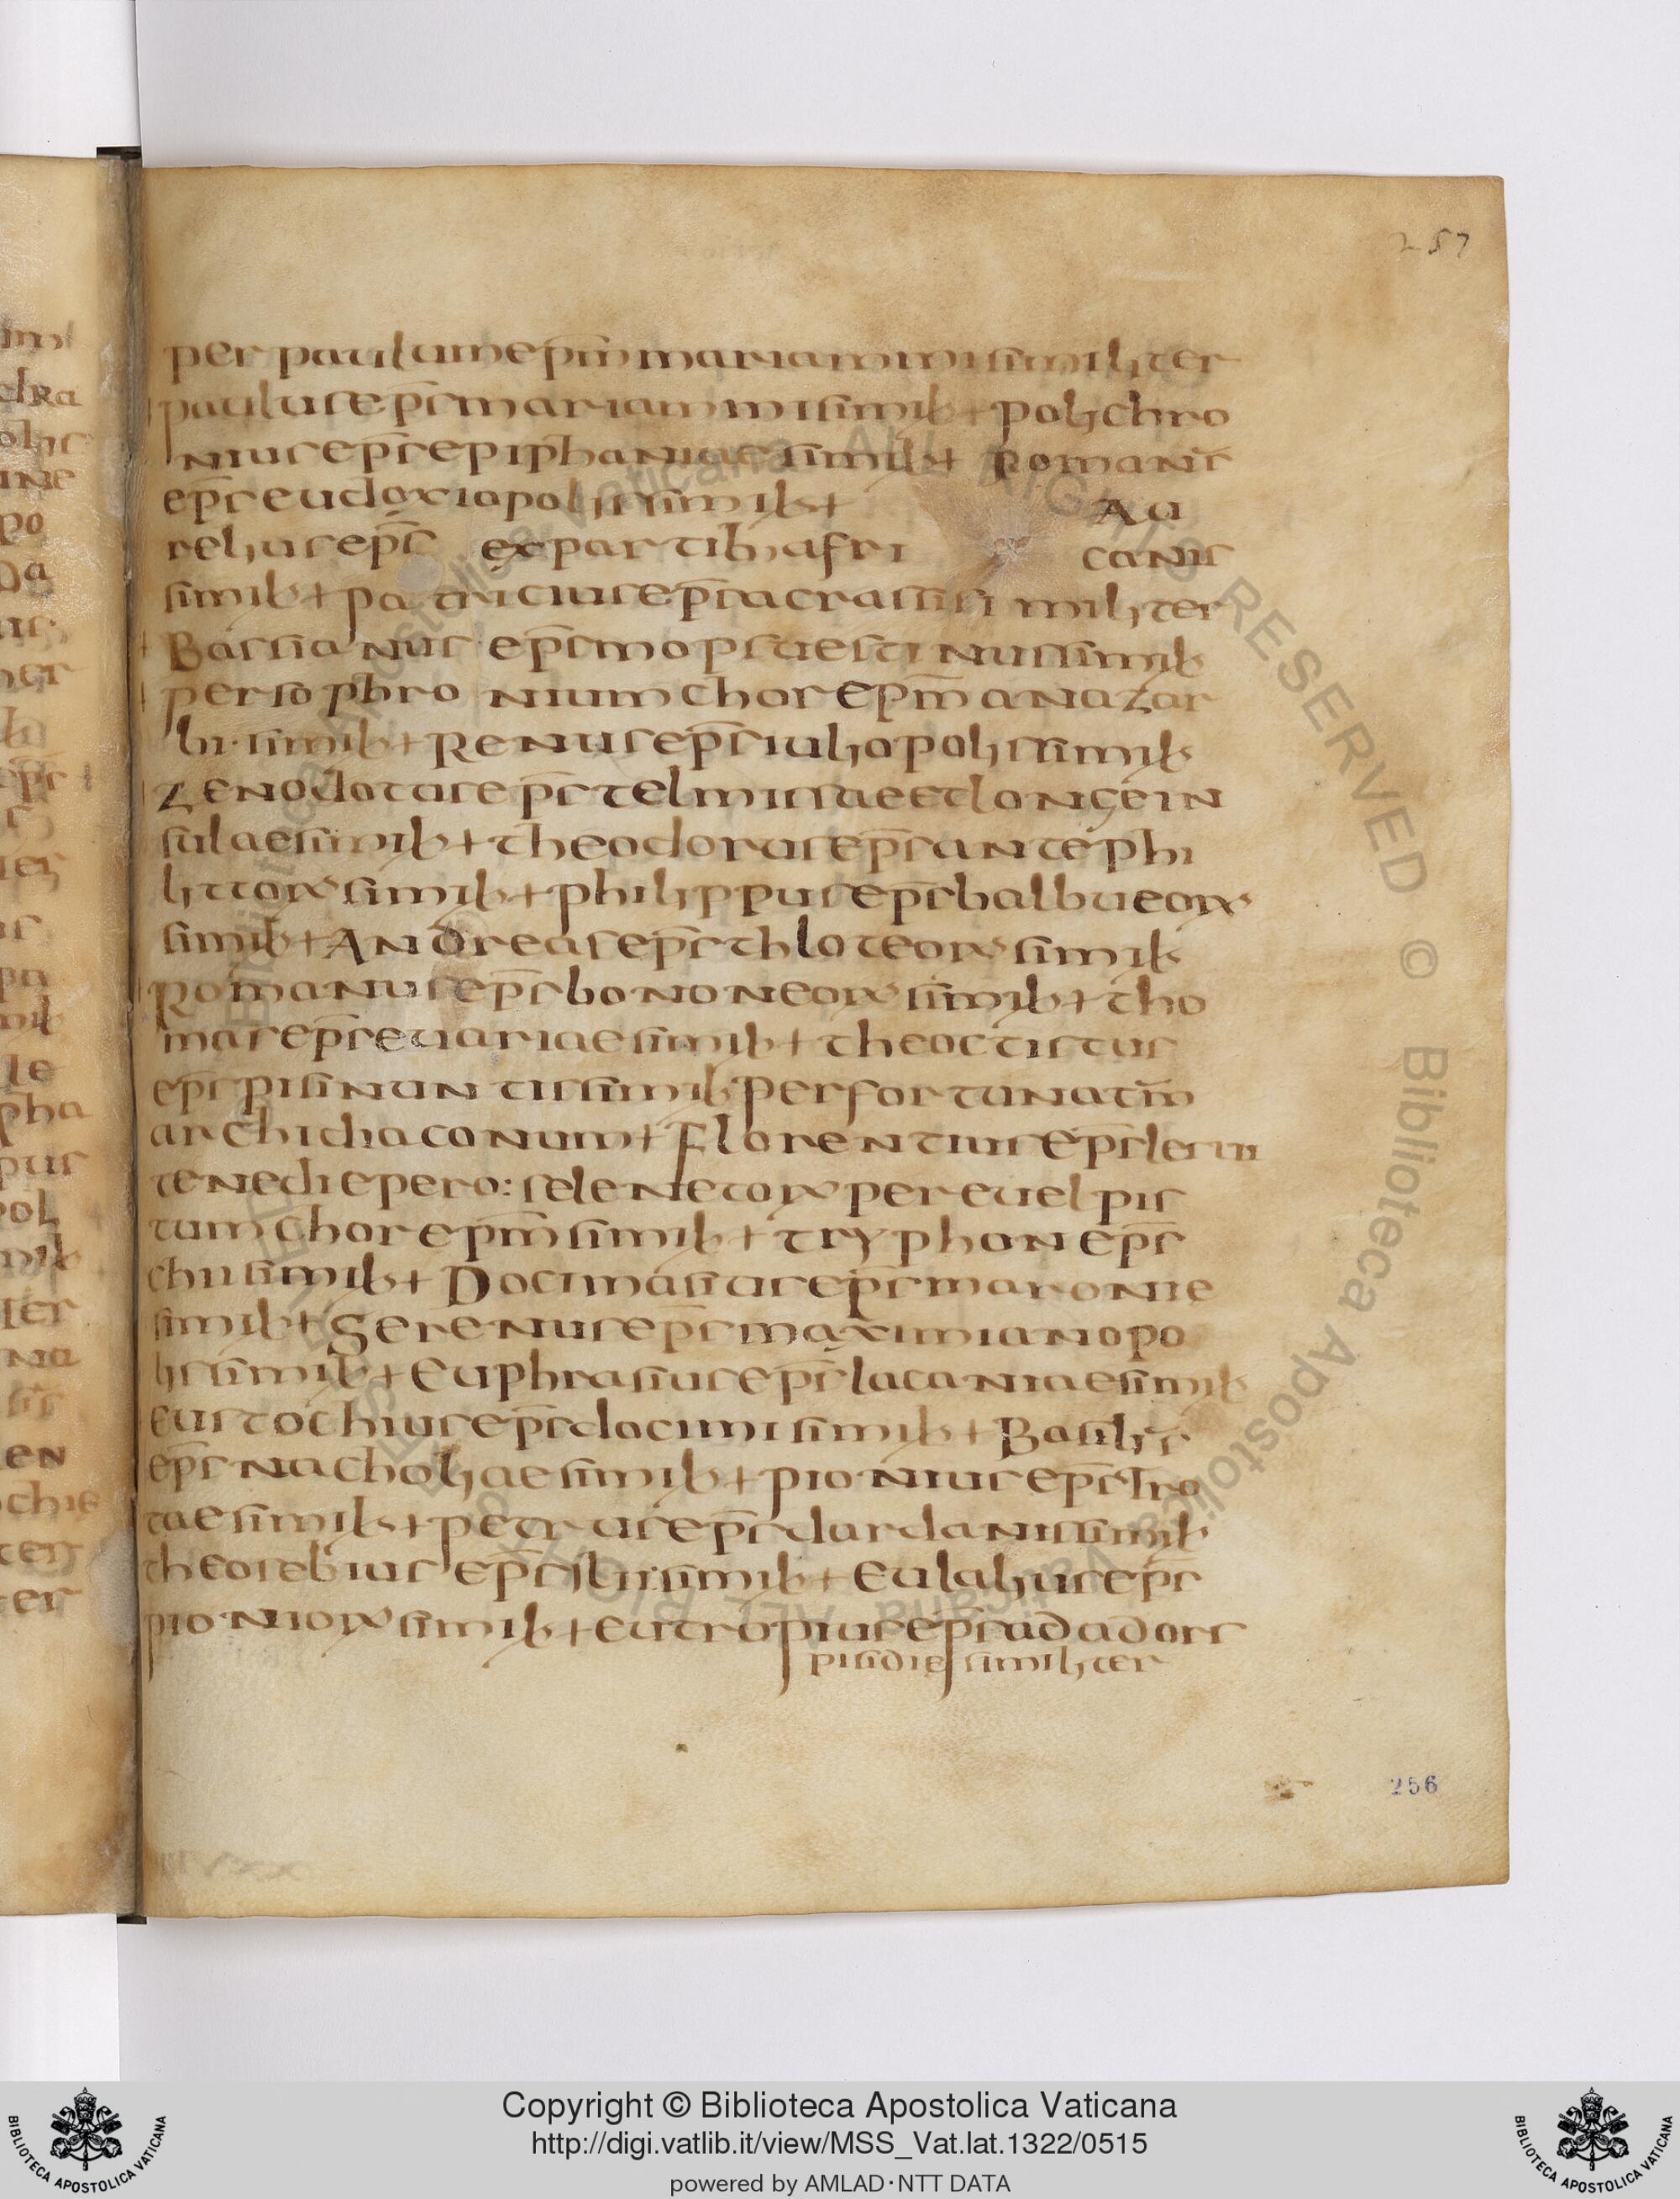 257
per paulum ep̄m mariammi similiter
paulus ep̄s mariammi simil + polychro
nius ep̄s epiphaniae simil + Roman̄s
ep̄s eudoxiopolis simil + Au
relius ep̄s ex partib; afri canis
simil + patricius ep̄s acrassi similiter
Bassianus ep̄s mopsuestinus simil
per sophronium chorep̄m anazar
bi simil + Renus ep̄s iuliopolis simil
Zenodotus ep̄s telmissae et longe in
sulae simil + theodorus ep̄s antephi
littorx simil + philippus ep̄s balbueorx
simil + Andreas ep̄s thloteorx simil
Romanus ep̄s bononeorx simil + tho
mas ep̄s euariae simil + theoctistus
ep̄s pisinuntis simil per fortunatm̄
archidiaconum + Florentius ep̄s lesvii
tenedi epero: selenetorx per euelpis
tum chorep̄m simil + tryphon ep̄s
chii simil + Docimasius ep̄s maronie
simil + Serenus ep̄s maximianopo
lis simil + Euphrasius ep̄s lacaniae simil
Eustochius ep̄s docimi simil + Basili̅s
ep̄s nacholiae simil + pionius ep̄s tro
tae simil + petrus ep̄s dardanis simil
theosebius ep̄s ilii simil + Eulalius ep̄s
pioniorx simil + eutropius ep̄s adadors
pisdie similiter
256
Copyright © Biblioteca Apostolica Vaticana
http://digi.vatlib.it/view/MSS_Vat.lat.1322/0515
powered by AMLAD·NTT DATA
BIBLIOTECA APOSTOLICA VATICANA
BIBLIOTECA APOSTOLICA VATICANA